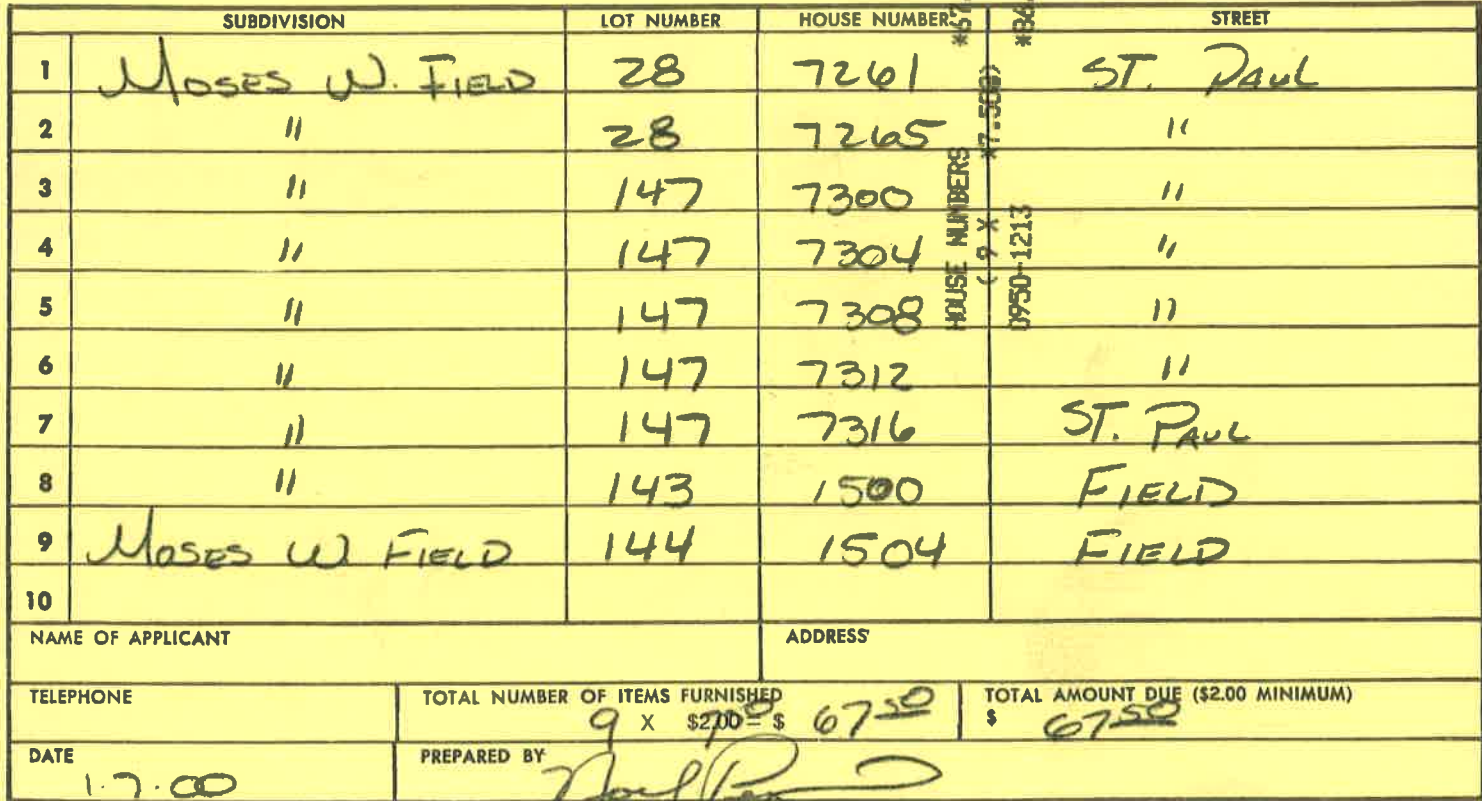 SUBDIVISION LOT NUMBER HOUSE NUMBERS STREET
1 MOSES W. FIELD 28 7261 ST. PAUL
2 " 28 7265 "
3 " 147 7300 "
4 " 147 7304 "
5 " 147 7308 "
6 " 147 7312 "
7 " 147 7316 ST. PAUL
8 " 143 1500 FIELD
9 MOSES W FIELD 144 1504 FIELD
10
HOUSE NUMBERS
( 9 X *7.500)
0950-1213
NAME OF APPLICANT ADDRESS
TELEPHONE TOTAL NUMBER OF ITEMS FURNISHED TOTAL AMOUNT DUE ($2.00 MINIMUM)
9 X $2.00 = $ 67 50 $ 67 50
DATE PREPARED BY
1.7.00